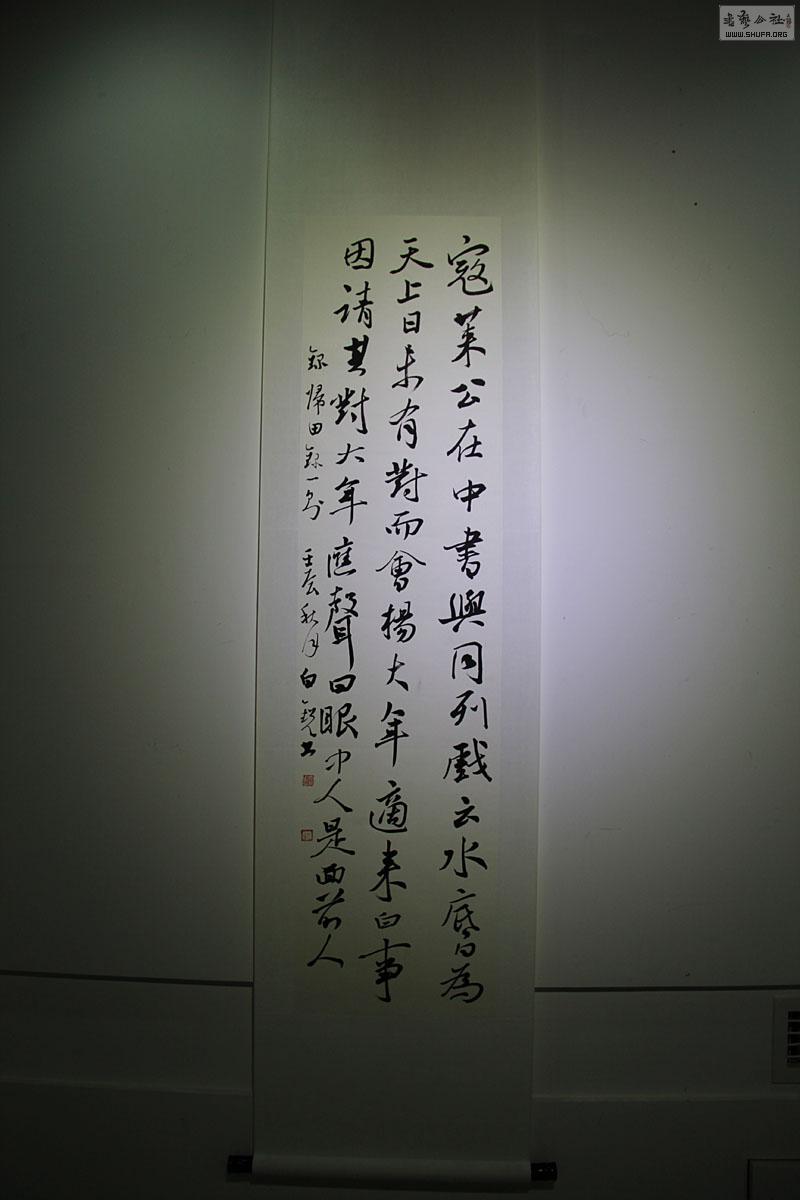 寇萊公在中書與同列戲云水底日為
天上日未有對而會楊大年適來白事
因請其對大年應聲曰眼中人是面前人
錄歸田錄一則 壬辰秋月白銳書
書藝公社
WWW.SHUFA.ORG